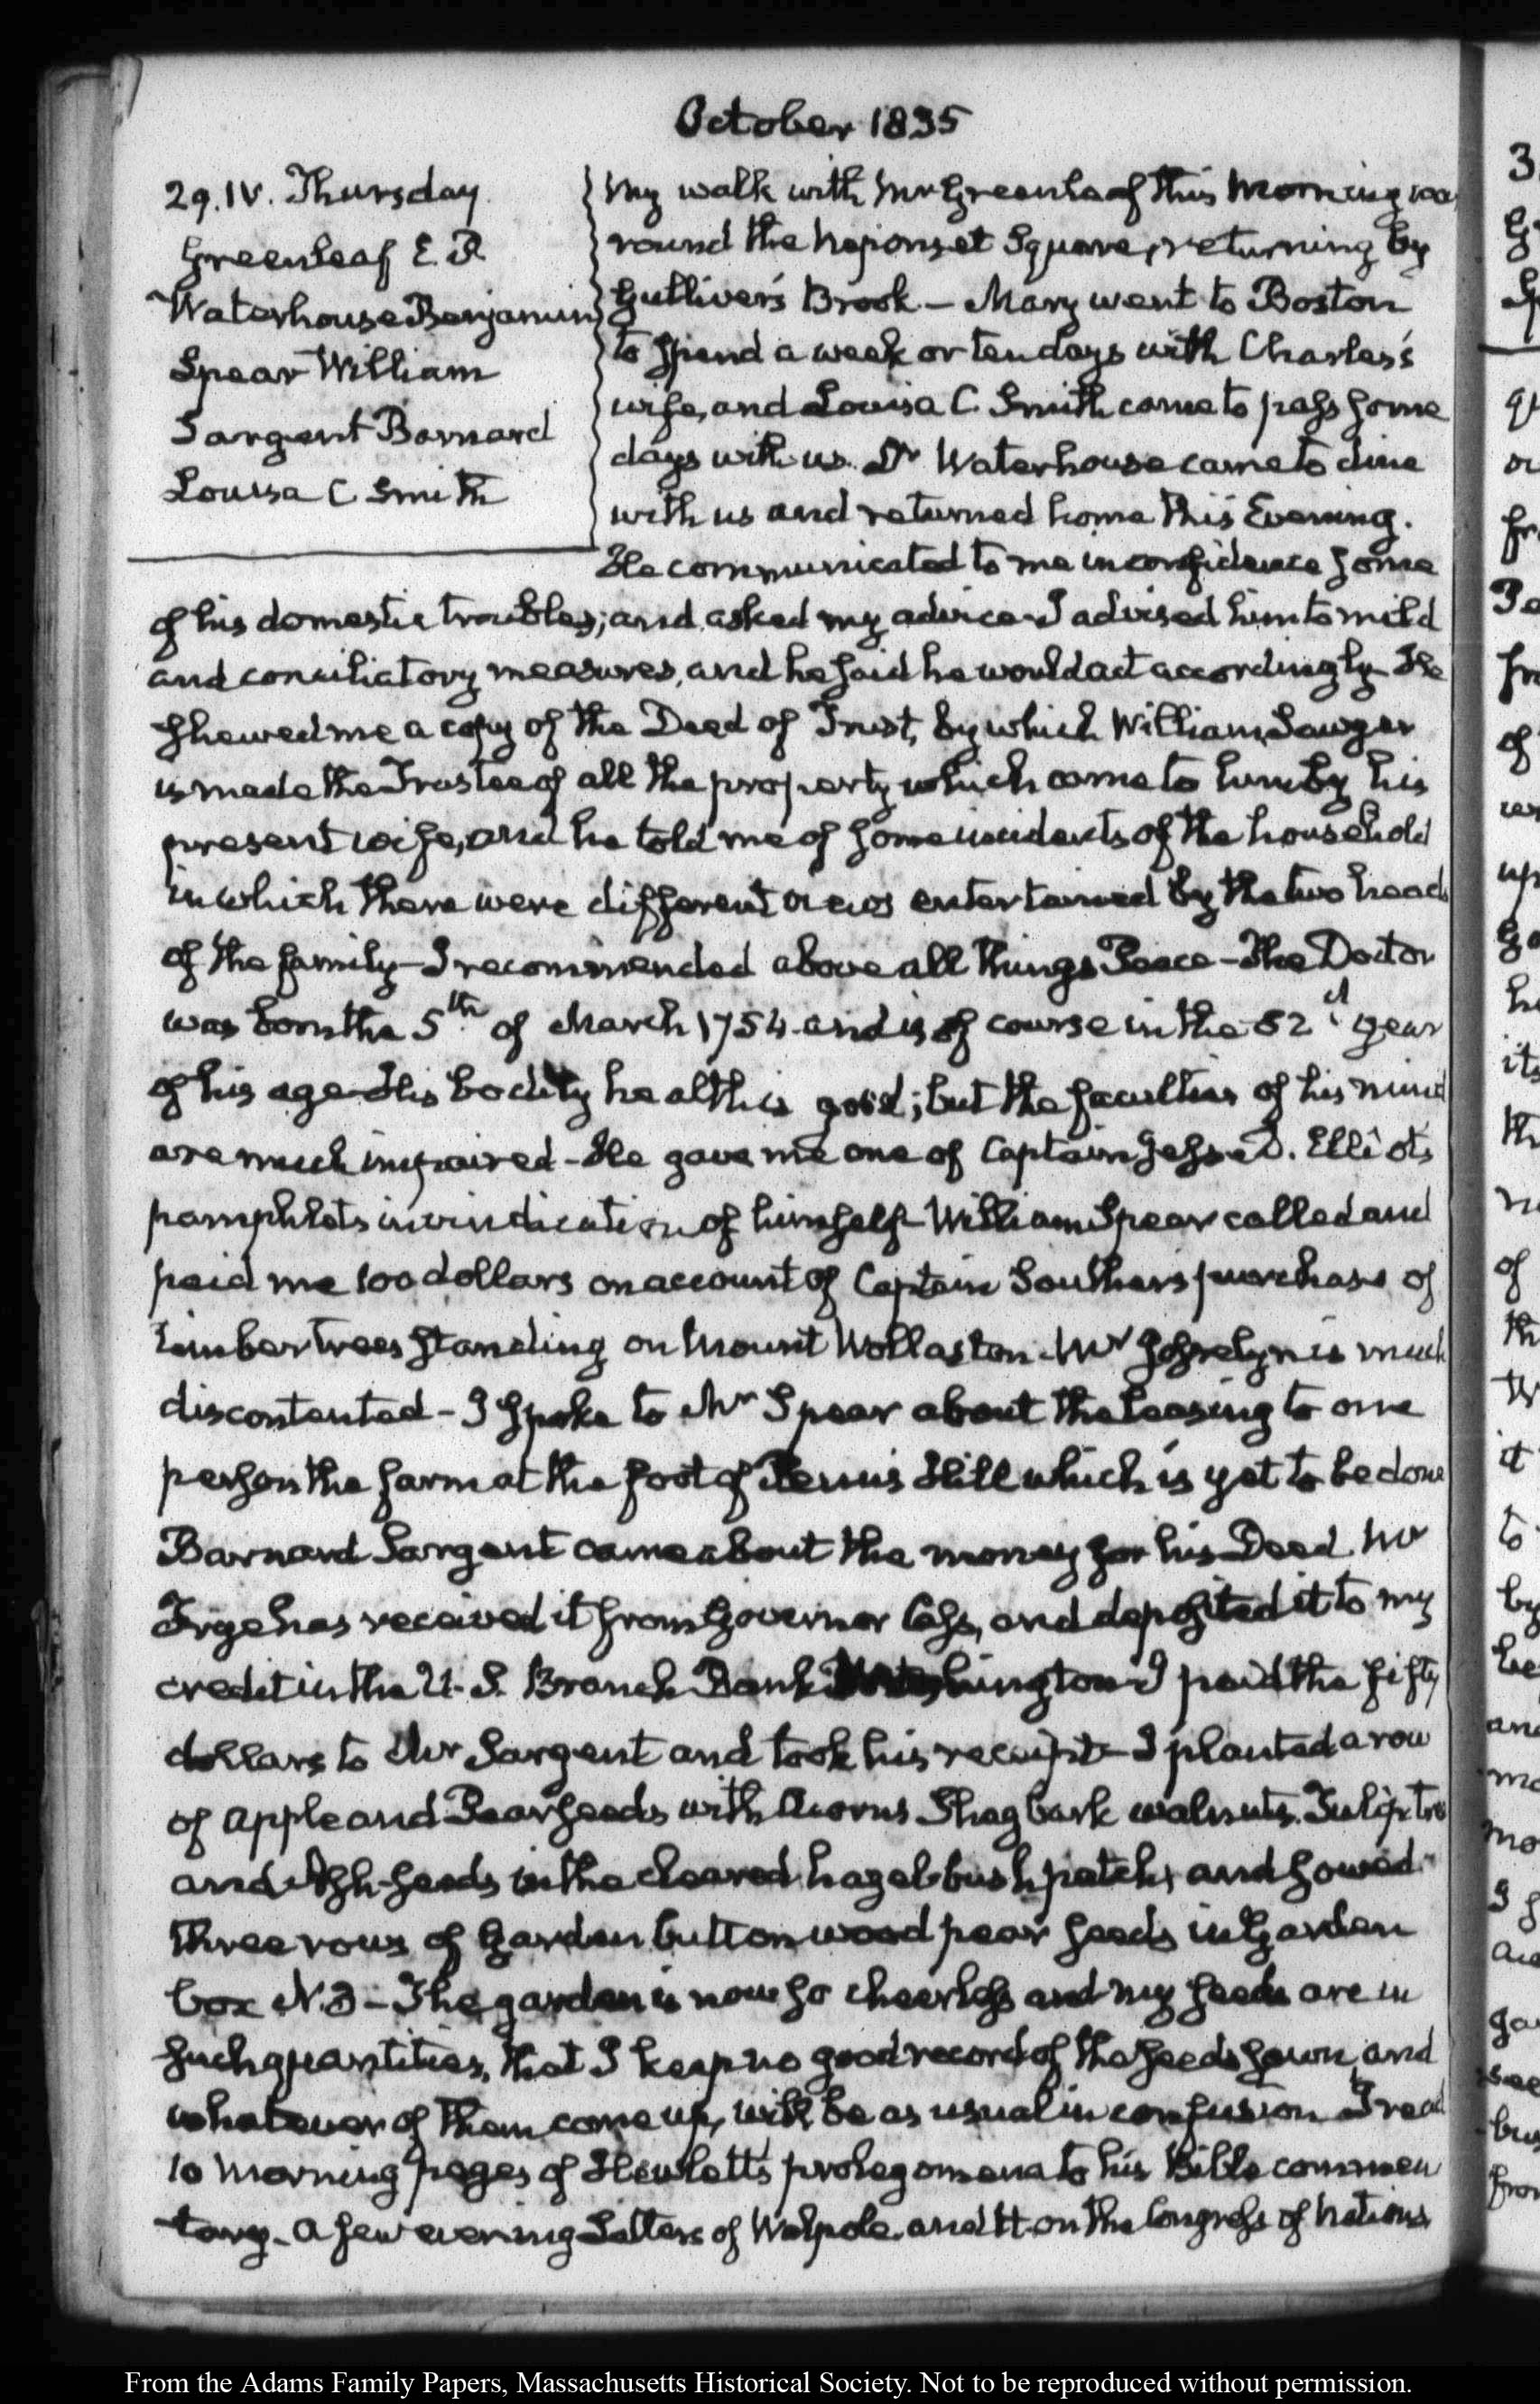 October 1835
29. IV. Thursday
Greenleaf E. P.
Waterhouse Benjamin
Spear William
Sargent Barnard
Louisa C Smith
My walk with Mr Greenleaf this Morning was
round the Neponset Square, returning by
Gulliver's Brook — Mary went to Boston
to spend a week or ten days with Charles's
wife, and Louisa C. Smith came to pass some
days with us. Dr Waterhouse came to dine
with us and returned home this Evening.
He communicated to me in confidence some
of his domestic troubles; and asked my advice. I advised him to mild
and conciliatory measures, and he said he would act accordingly. He
shewed me a copy of the Deed of Trust, by which William Sawyer
is made the Trustee of all the property which came to him by his
present wife, and he told me of some incidents of the household
in which there were different views entertained by the two heads
of the family — I recommended above all things Peace — The Doctor
was born the 5th of March 1754 and is of course in the 82d year
of his age. His bodily health is good; but the faculties of his mind
are much impaired — He gave me one of Captain Jesse D. Elliot's
pamphlets in vindication of himself — William Spear called and
paid me 100 dollars on account of Captain Souther's purchase of
timber trees standing on Mount Wollaston. Mr Josselyn is much
discontented — I spoke to Mr Spear about the leasing to one
person the farm at the foot of Penn's Hill which is yet to be done
Barnard Sargent came about the money for his Deed. Mr
Frye has received it from Governor Cass, and deposited it to my
credit in the U. S. Branch Bank Washington — I paid the fifty
dollars to Mr Sargent and took his receipt — I planted a row
of apple and Pear seeds with Acorns Shagbark walnuts. Tulip tree
and Ash-seeds in the cleared hazel-bush patch, and sowed
three rows of Garden button wood pear seeds in Garden
box N. 3 — The garden is now so cheerless and my seeds are in
such quantities, that I keep no good record of the seeds sown, and
whatever of them come up, will be as usual in confusion. I read
10 morning pages of Hewlett's prolegomena to his Bible commen
tary. A few evening Letters of Walpole and tt. on the Congress of Nations
From the Adams Family Papers, Massachusetts Historical Society. Not to be reproduced without permission.